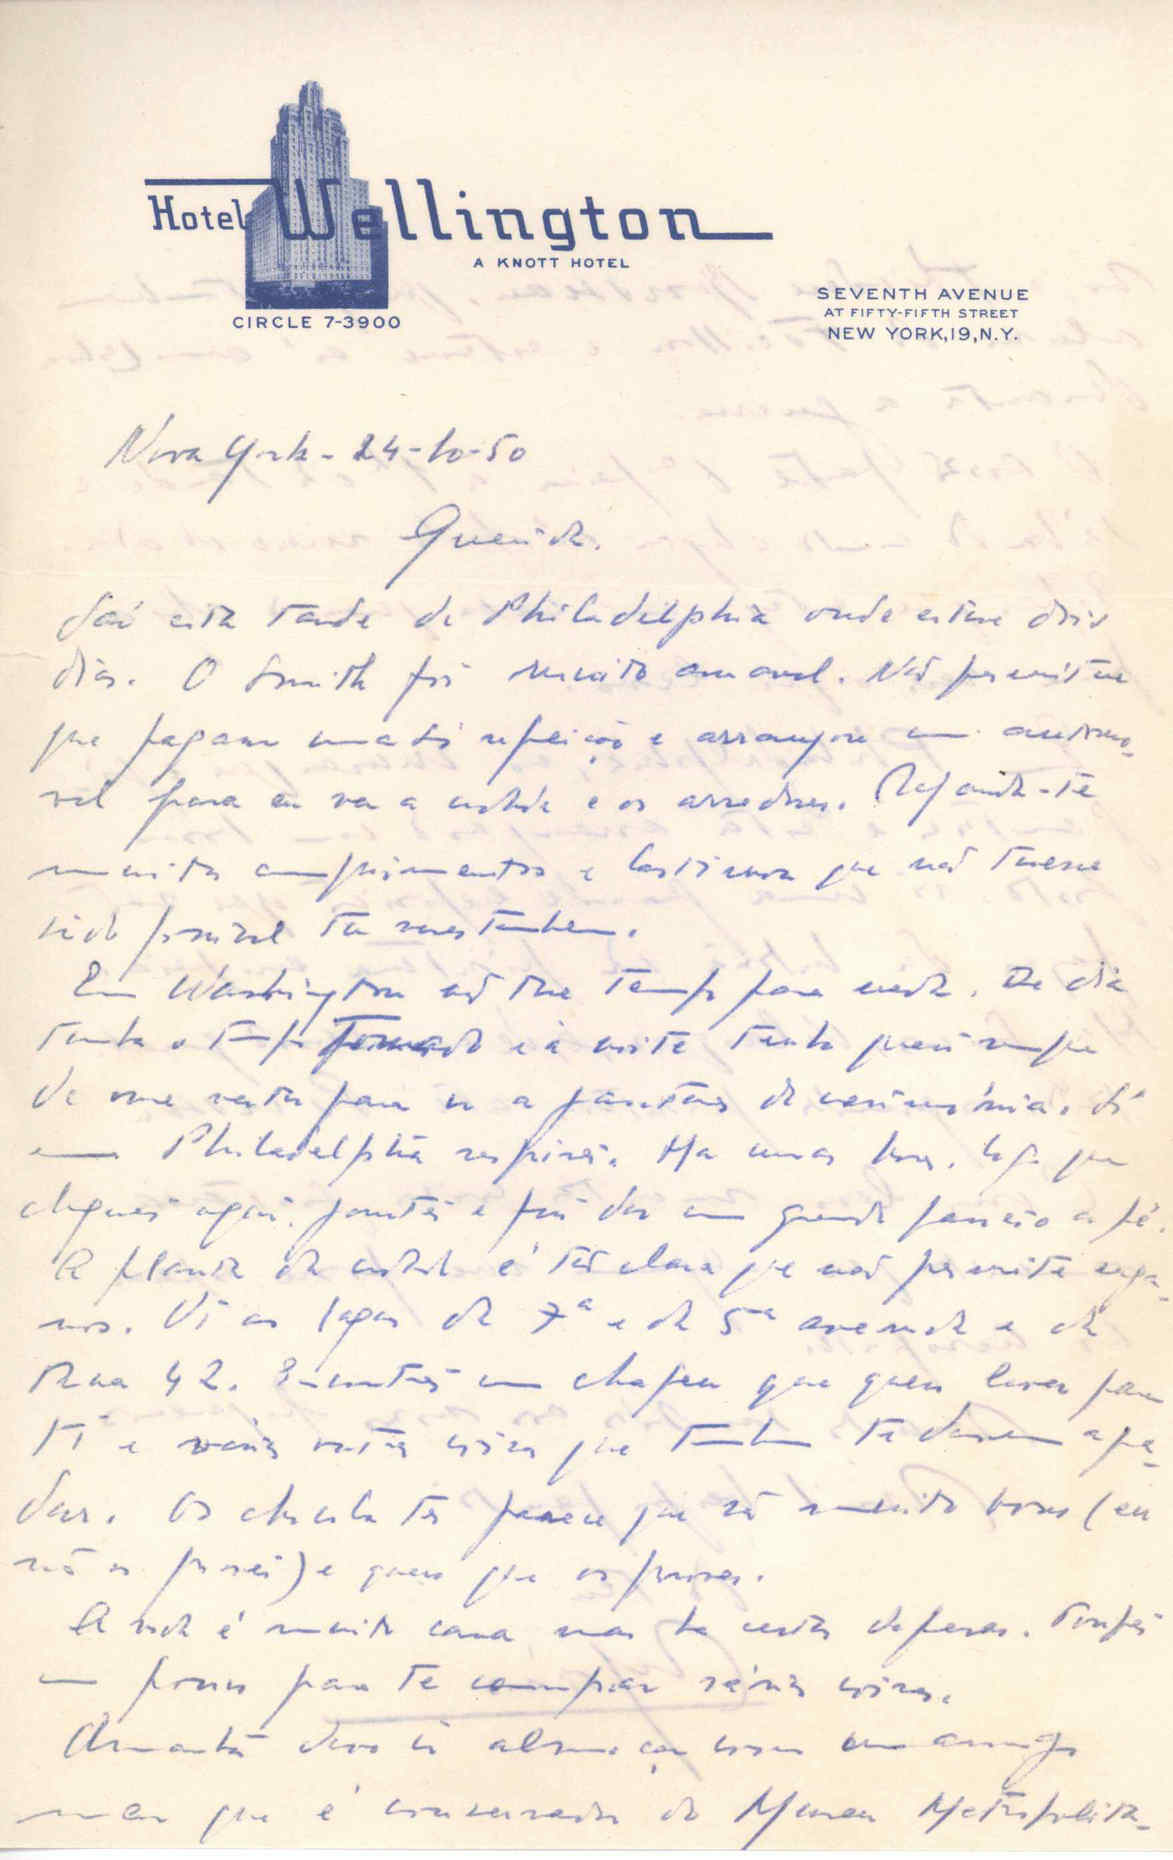 Hotel Wellington
A KNOTT HOTEL
CIRCLE 7-3900
SEVENTH AVENUE
AT FIFTY-FIFTH STREET
NEW YORK,19,N.Y.
Nova York - 24-10-50
Querida.
Saí esta tarde de Philadelphia onde estive dois
dias. O Smith foi muito amavel. Não permitiu
que pagasse uma só refeição e arranjou um automo-
vel para eu ver a cidade e os arredores. Manda-te
muitos cumprimentos e lastimou que não tivesse
sido possivel tu vires tambem.
Em Washington não tive tempo para nada. De dia
tinha o tempo tomado e á noite tinha quasi sempre
de me vestir para ir a jantares de cerimónia. Só
em Philadelphia respirei. Ha umas horas, logo que
cheguei aqui, jantei e fui dar um grande passeio a pé.
A planta da cidade é tão clara que não permite enga-
nos. Vi as lojas da 7ª e da 5ª avenida e da
Rua 42. Encontrei um chapeu que quero levar para
ti e varias outras coisas que tambem te devem agra-
dar. Os chocolates parece que são muito bons (eu
não os provei) e quero que os proves.
A vida é muito cara mas ha certas defesas. Poupei
um pouco para te comprar várias coisas.
Amanhã devo ir almoçar com um amigo
meu que é conservador do Museu Metropolita-